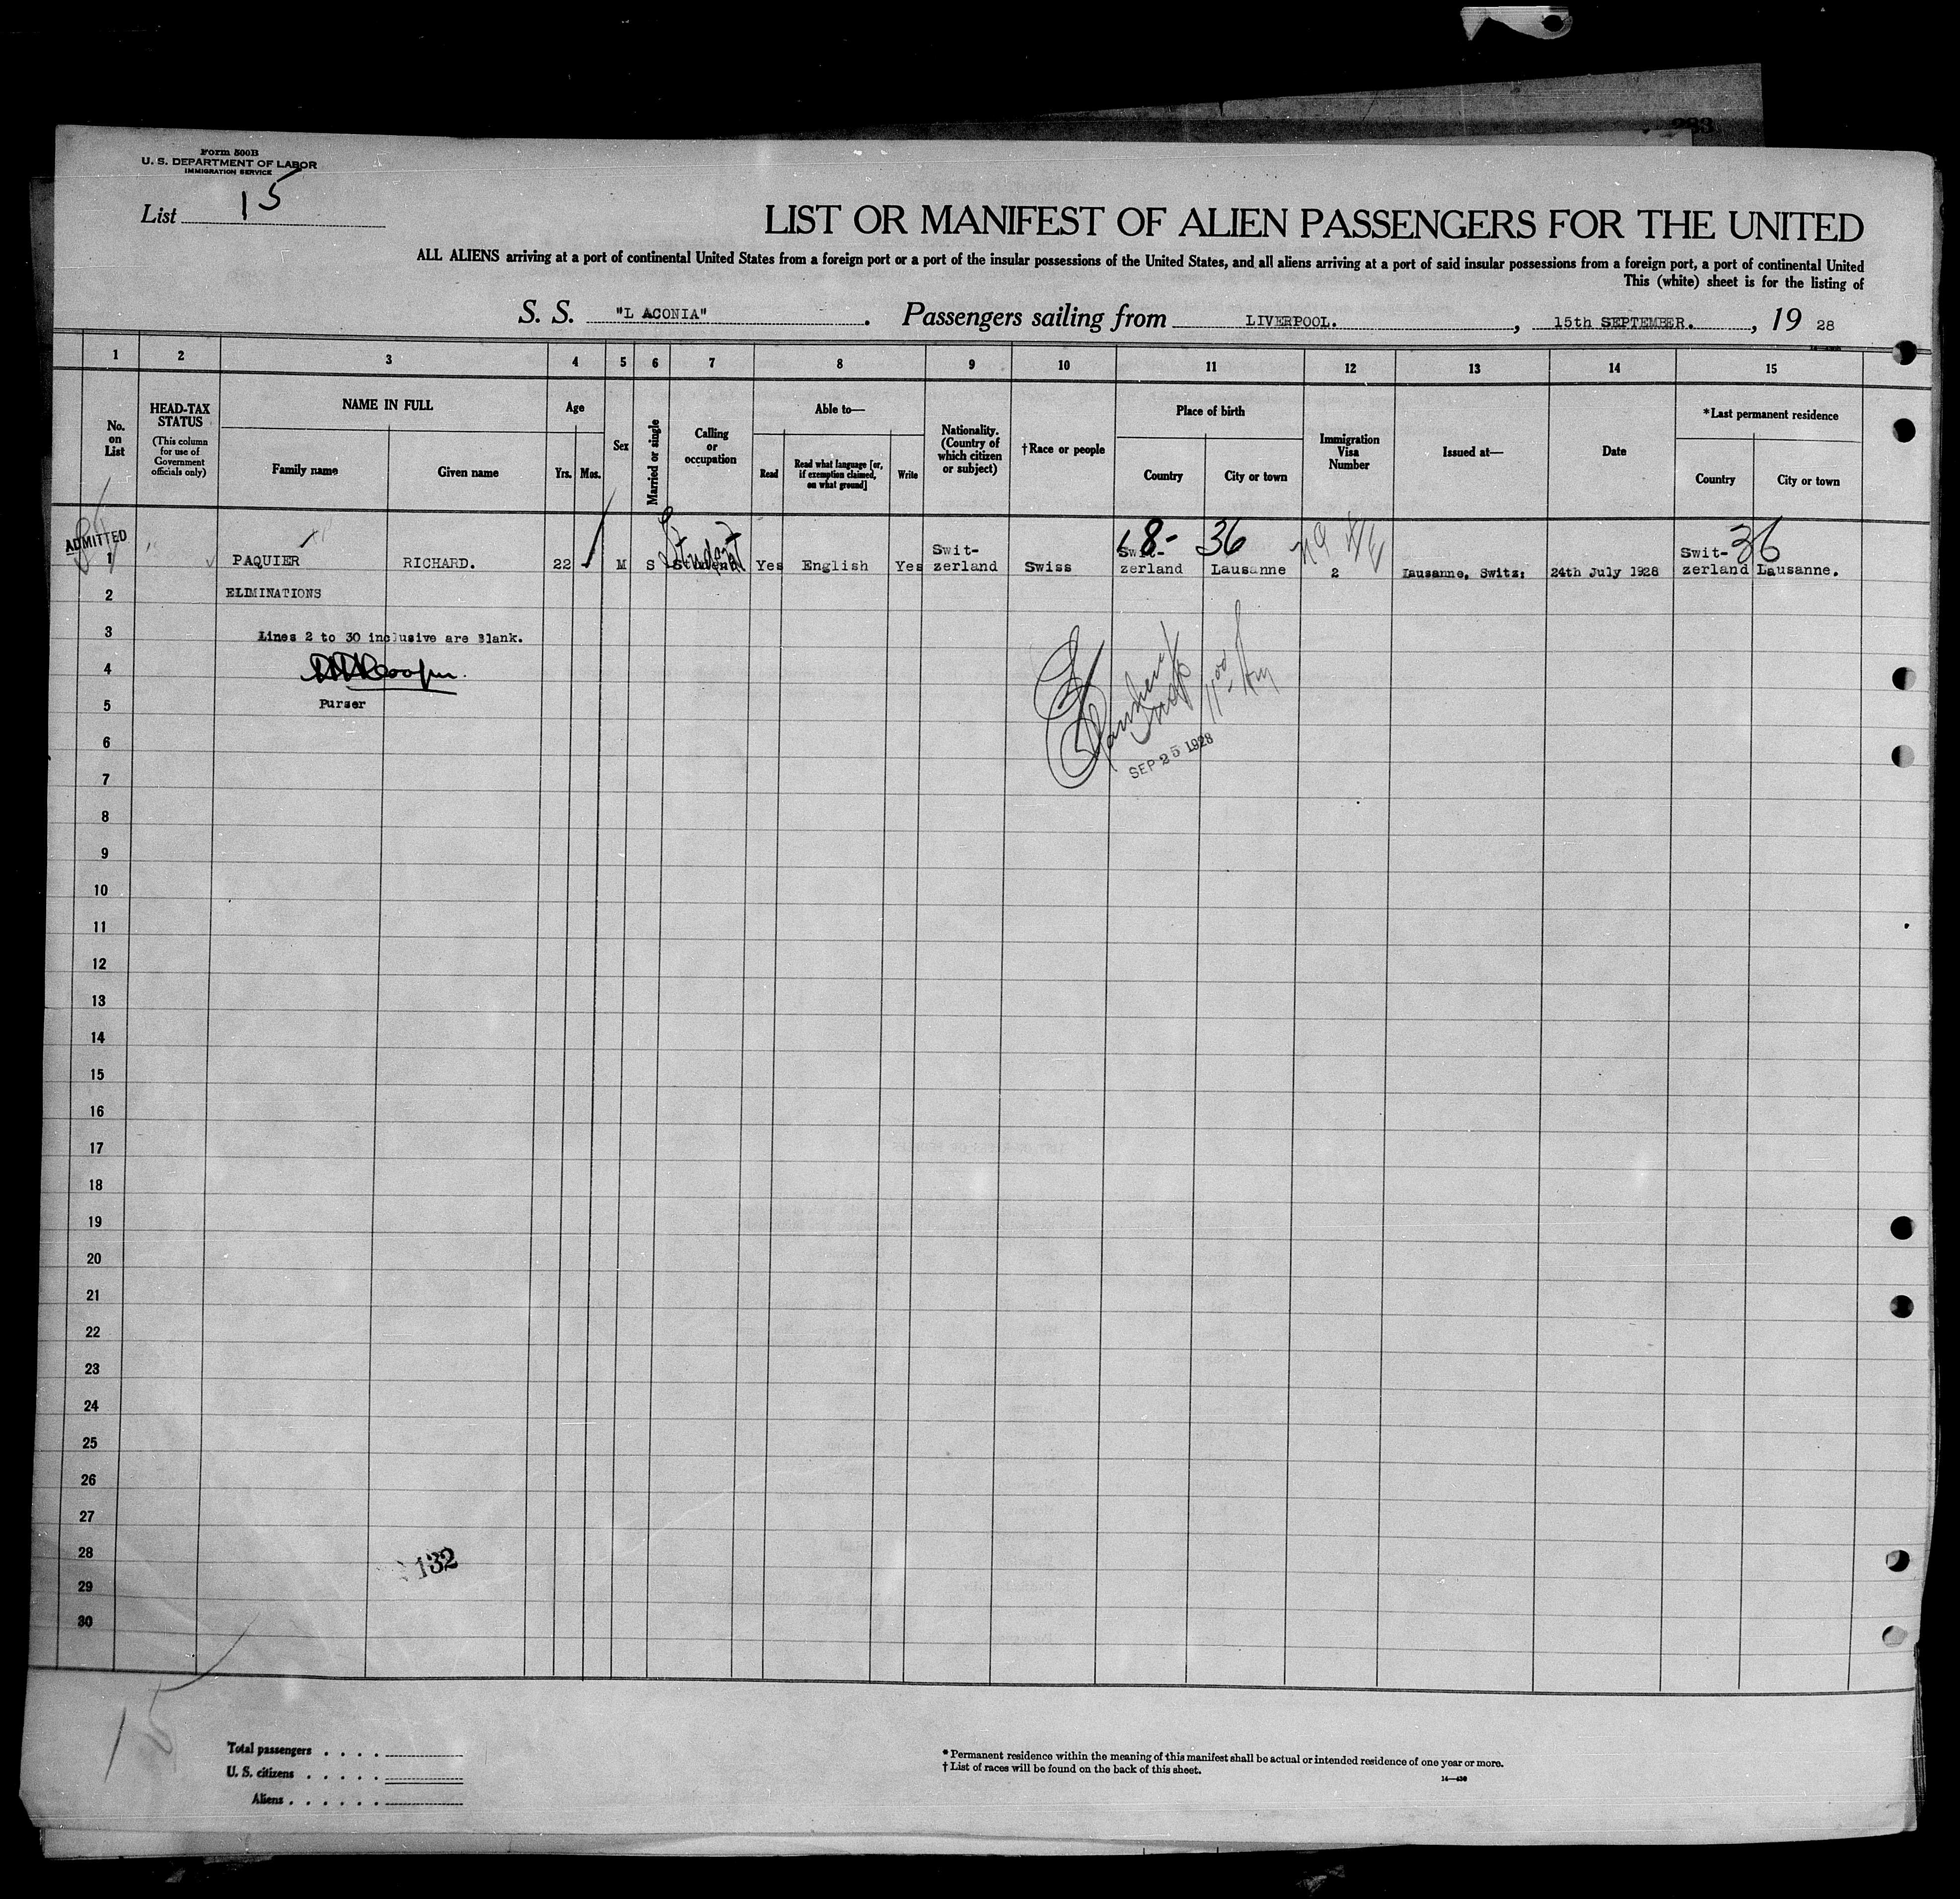 233
Form 500B
U. S. DEPARTMENT OF LABOR
IMMIGRATION SERVICE
List 15
LIST OR MANIFEST OF ALIEN PASSENGERS FOR THE UNITED
ALL ALIENS arriving at a port of continental United States from a foreign port or a port of the insular possessions of the United States, and all aliens arriving at a port of said insular possessions from a foreign port, a port of continental United
This (white) sheet is for the listing of
S. S. "L ACONIA". Passengers sailing from LIVERPOOL., 15th SEPTEMBER., 19 28
1 2 3 4 5 6 7 8 9 10 11 12 13 14 15
No. on List
HEAD-TAX STATUS
(This column for use of Government officials only)
NAME IN FULL
Family name
Given name
Age
Yrs. Mos.
Sex
Married or single
Calling or occupation
Able to—
Read
Read what language [or, if exemption claimed, on what ground]
Write
Nationality. (Country of which citizen or subject)
†Race or people
Place of birth
Country
City or town
Immigration Visa Number
Issued at—
Date
*Last permanent residence
Country
City or town
ADMITTED
Student
68- 36
36
1 PAQUIER RICHARD. 22 M S Student Yes English Yes Swit-zerland Swiss Swit-zerland Lausanne 2 Lausanne, Switz: 24th July 1928 Swit-zerland Lausanne.
2 ELIMINATIONS
3 Lines 2 to 30 inclusive are Blank.
4
5 Purser
6
SEP 25 1928
7
8
9
10
11
12
13
14
15
16
17
18
19
20
21
22
23
24
25
26
27
28
132
29
30
15
Total passengers . . . .
U. S. citizens . . . . .
Aliens . . . . . .
* Permanent residence within the meaning of this manifest shall be actual or intended residence of one year or more.
† List of races will be found on the back of this sheet.
14—430